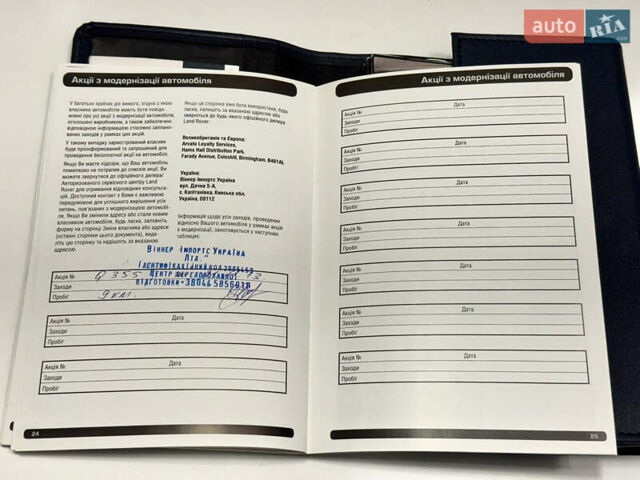 auto RIA
Акції з модернізації автомобіля
У багатьох країнах діє вимога, згідно з якою
власники автомобілів мають бути повідо-
млені про усі акції з модернізації автомобілів,
оголошені виробником, а також забезпечені
відповідною інформацією стосовно заплано-
ваних заходів у рамках цих акцій.
У такому випадку зареєстрований власник
буде проінформований та запрошений для
проведення безоплатної акції на автомобілі.
Якщо Ви маєте підозри, що Ваш автомобіль
помилково не потрапив до списків акції, Ви
можете звернутися до офіційного дилера/
Авторизованого сервісного центру Land
Rover для отримання відповідних консульта-
цій. Доступний контакт з Вами є важливою
передумовою для успішного вирішення усіх
питань, пов'язаних з модернізацією автомобіля.
Якщо Ви змінили адресу або стали новим
власником автомобіля, будь ласка, заповніть
форму на сторінці Зміна власника або адреси
(останні сторінки цього документа), виді-
літь цю сторінку та надішліть за вказаною
адресою.
Якщо ця сторінка вже була використана, будь
ласка, напишіть за вказаною адресою або
зверніться до будь-якого офіційного дилера
Land Rover.
Великобританія та Європа:
Arvato Loyalty Services,
Hams Hall Distribution Park,
Farady Avenue, Coleshill, Birmingham. B461AL
Україна:
Віннер Імпортс Україна
вул. Дачна 5-А,
с. Капітанівка, Київська обл.
Україна, 08112
Інформація щодо усіх заходів, проведених
відносно Вашого автомобіля у рамках акцій
з модернізації, занотовується у наступних
таблицях:
ВІННЕР ІМПОРТС УКРАЇНА
ЛТД."
ІДЕНТИФІКАЦІЙНИЙ КОД
ЦЕНТР ПЕРЕДПРОДАЖНОЇ
ПІДГОТОВКИ
Акція № Q 355
Заходи
Пробіг 9 км.
Акція № Дата
Заходи
Пробіг
Акція № Дата
Заходи
Пробіг
24
Акції з модернізації автомобіля
Акція № Дата
Заходи
Пробіг
Акція № Дата
Заходи
Пробіг
Акція № Дата
Заходи
Пробіг
Акція № Дата
Заходи
Пробіг
Акція № Дата
Заходи
Пробіг
Акція № Дата
Заходи
Пробіг
Акція № Дата
Заходи
Пробіг
25